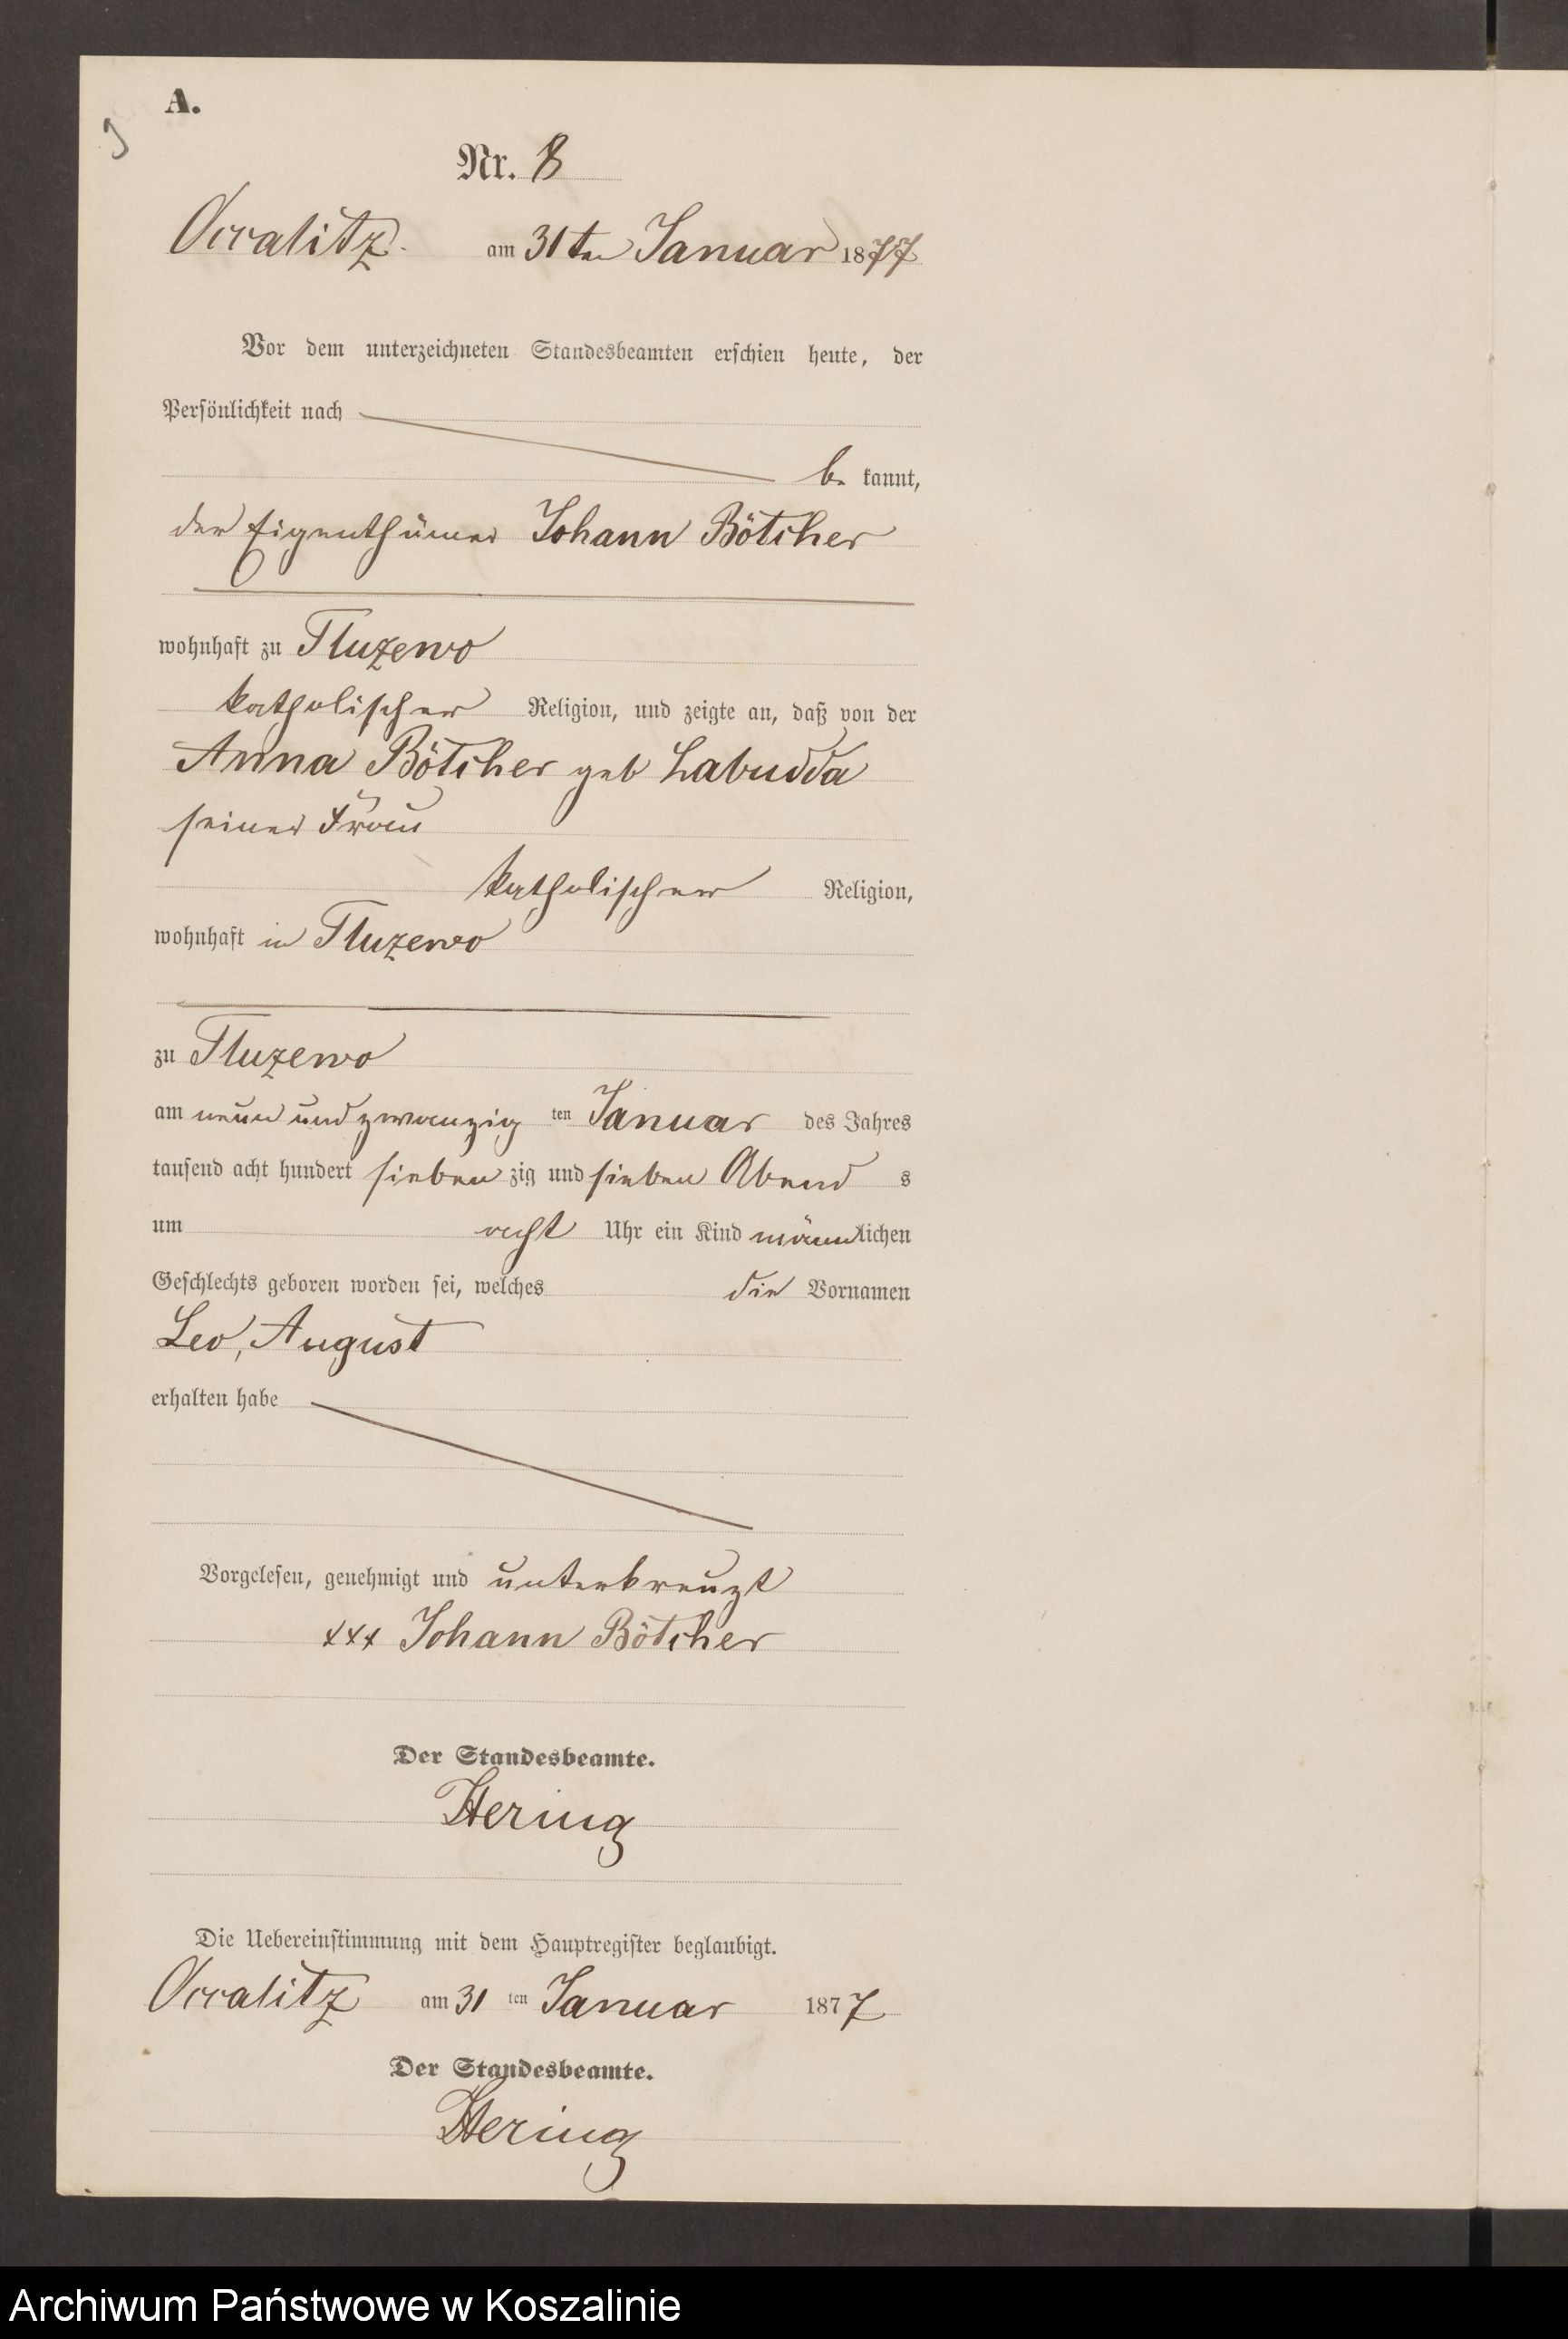 A.
9
Nr. 8
Occalitz. am 31ten Januar 1877
Vor dem unterzeichneten Standesbeamten erschien heute, der
Persönlichkeit nach
be kannt,
der Eigenthümer Johann Bötcher
wohnhaft zu Tluzewo
katholischer Religion, und zeigte an, daß von der
Anna Bötcher geb Labudda
seiner Frau
katholischer Religion,
wohnhaft in Tluzewo
zu Tluzewo
am neun und zwanzig ten Januar des Jahres
tausend acht hundert sieben zig und sieben Abend s
um acht Uhr ein Kind männlichen
Geschlechts geboren worden sei, welches die Vornamen
Leo, August
erhalten habe
Vorgelesen, genehmigt und unterkreuzt
xxx Johann Bötcher
Der Standesbeamte.
Hering
Die Uebereinstimmung mit dem Hauptregister beglaubigt.
Occalitz am 31 ten Januar 1877
Der Standesbeamte.
Hering
Archiwum Państwowe w Koszalinie